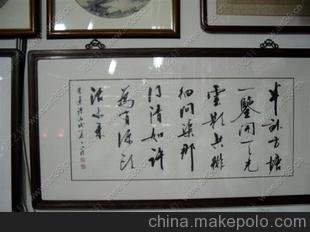 半畝方塘
一鑒開天光
雲影共徘
徊問渠那
得清如許
為有源頭
活水來
china.makepolo.com